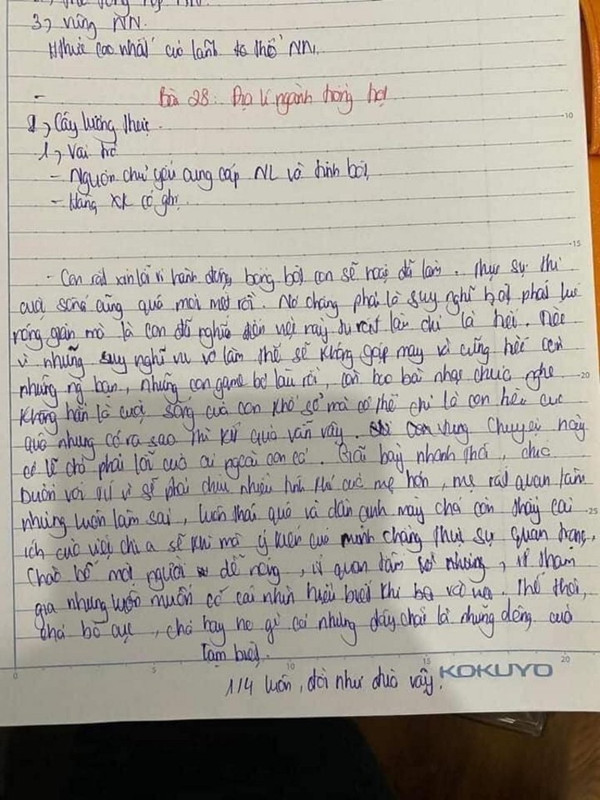 3, vùng NN.
Hthức cao nhất của lãnh thổ NN.
Bài 28: Địa lí ngành trồng trọt
I, Cây lương thực.
1, Vai trò
- Nguồn chủ yếu cung cấp NL và tinh bột,
- Hàng XK có gtrị.
15
- Con rất xin lỗi vì hành động bồng bột con sẽ hoặc đã làm. Thực sự thì
cuộc sống cũng quá mỏi mệt rồi. Nó chẳng phải là suy nghĩ bột phát
trong gian mà là con đã nghĩ đến việc này từ rất lâu chỉ là hèn.
vì những suy nghĩ vu vơ làm thế sẽ không gặp mấy
những ng bạn, những con game bỏ lâu rồi, còn bao bài nhạc chưa nghe
20
Không hẳn là cuộc sống của con khổ sở mà có thể chỉ là con tiêu cực
quá nhưng có ra sao thì kết quả vẫn vậy. Chuyện này
có lẽ chả phải lỗi của ai ngoài con cả. Giãi bày nhanh thôi, chắc
buồn với vì sẽ phải chịu nhiều tính khí của mẹ hơn, mẹ rất quan tâm
nhưng luôn làm sai, luôn thái quá và dần anh mày chả còn thấy cái
25
ích của việc chia sẽ khi mà ý kiến của mình chẳng thực sự quan trọng.
Chào bố một người dễ nóng, ít quan tâm nhưng, ít tham
gia nhưng luôn muốn có cái nhìn hiểu biết khi bố Thế thôi,
chả bố cục, chả hay ho gì cả nhưng đấy chải là những dòng của
tạm biệt.
0
5
10
15
20
KOKUYO
1/4 luôn, đời như đùa vậy.